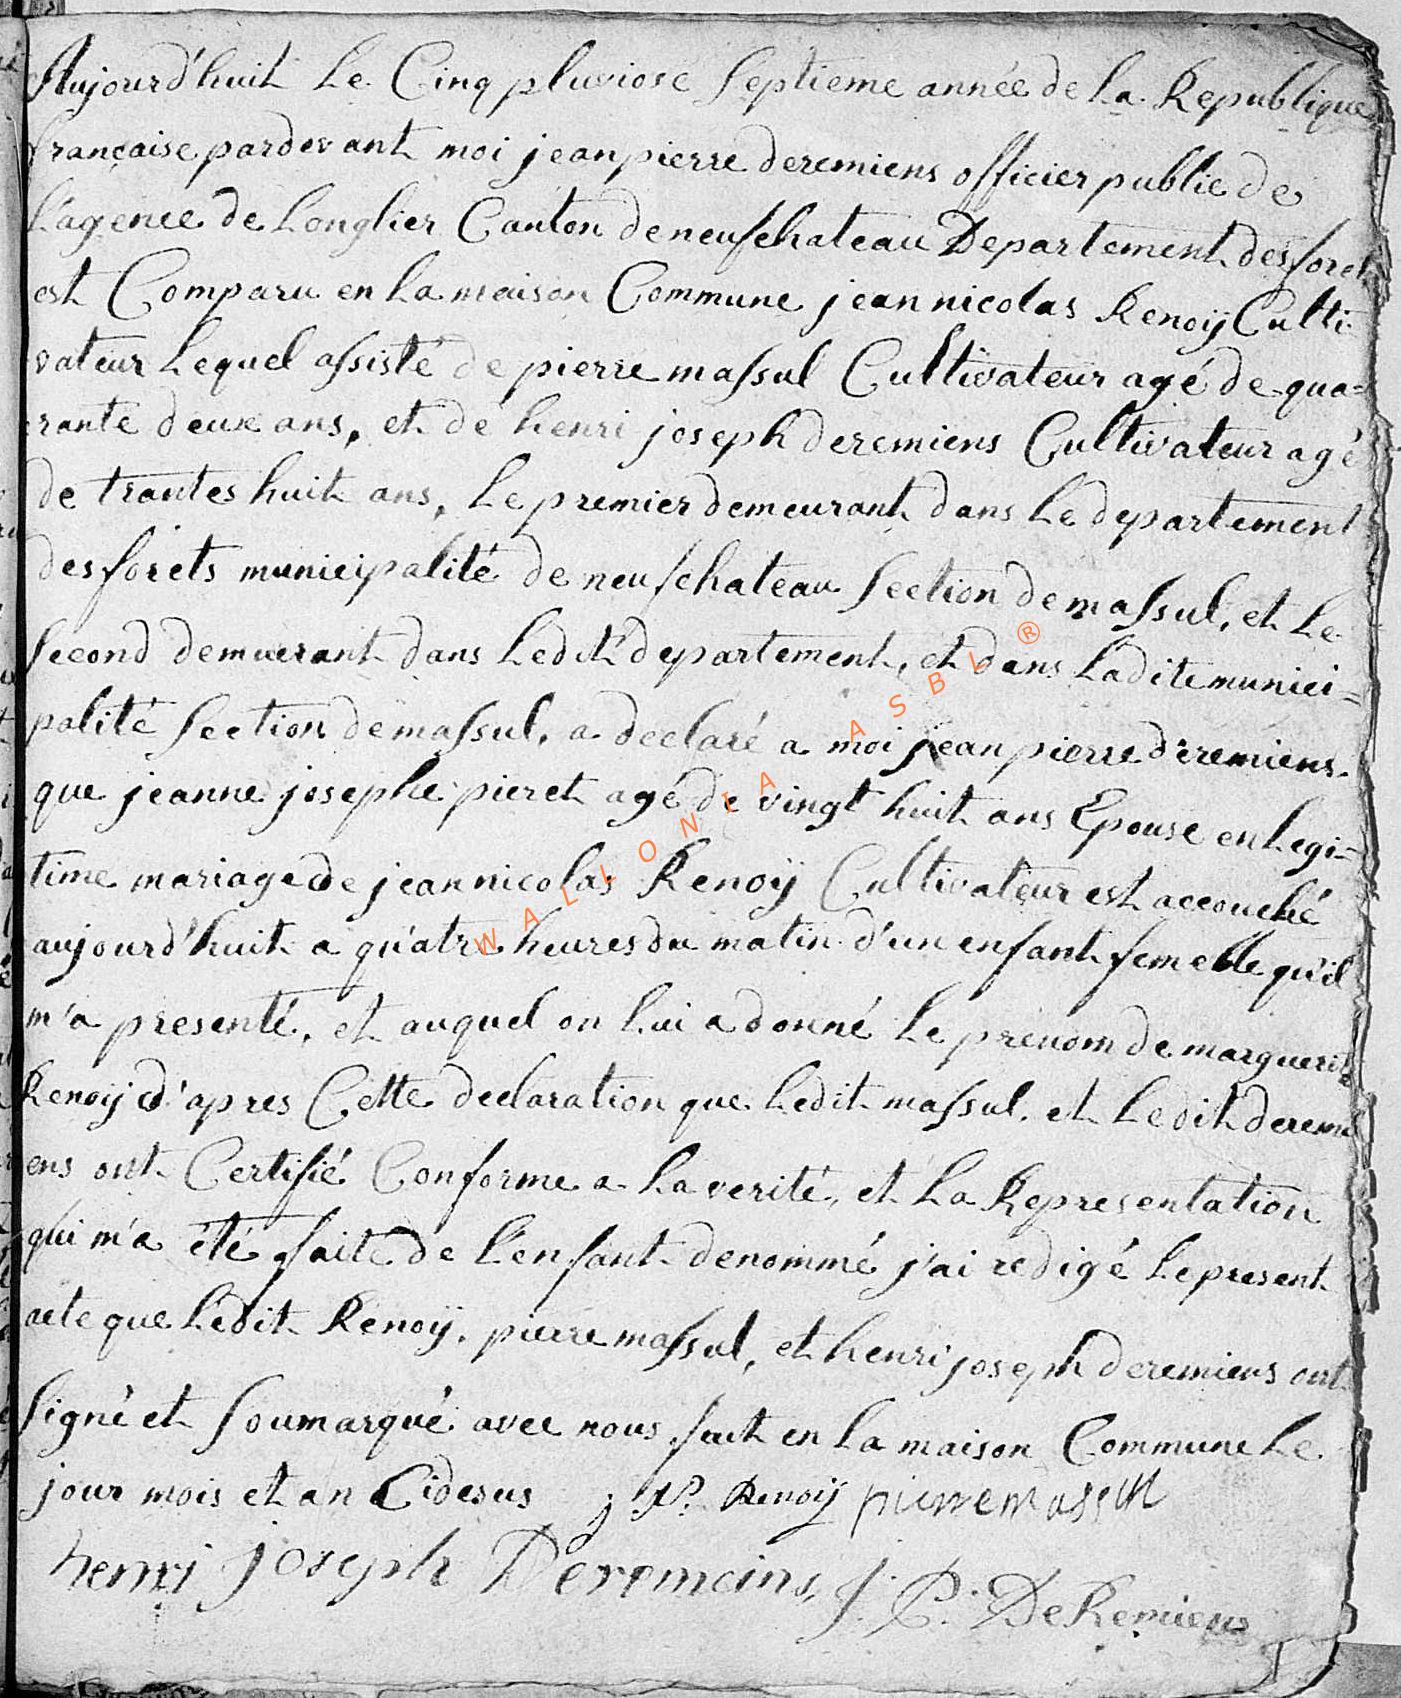 Aujourd'huit Le Cinq pluviose Septieme année de La Republique
française pardevant moi jean pierre deremiens officier public de
L'agence de Longlier Canton de neufchateau Departement des foret
est Comparu en La maison Commune jean nicolas Renoÿ Culti
vateur Lequel assisté de pierre massul Cultivateur agé de qua=
rante deux ans, et de henri joseph deremiens Cultivateur agé
de trantes huit ans, Le premier demeurant dans Le departement
des forets municipalité de neufchateau Section de massul, et Le
Second demuerant dans Ledit departement, et dans Ladite munici=
palité Section de massul, a declaré a moi jean pierre deremiens
que jeanne josephe pieret agé de vingt huit ans Epouse en Legi=
time mariage de jean nicolas Renoÿ Cultivateur est accouché
aujourd'huit a quatre heures du matin d'un enfant femelle qu'il
m'a presenté, et auquel on Lui a donné Le prenom de marguerite
Renoÿ d'apres Cette declaration que Ledit massul, et Ledit deremi
ens ont Certifié Conforme a La verité, et La Representation
qui m'a été faite de L'enfant denommé j'ai redigé Le present
acte que Ledit Renoÿ, pierre massul, et henri joseph deremiens ont
Signé et Soumarqué avec nous fait en La maison Commune Le
jour mois et an Cidesus j N. Renoÿ pierre massul
henri joseph Deremeins, J. P. DeRemiens
WALLONIA ASBL ®